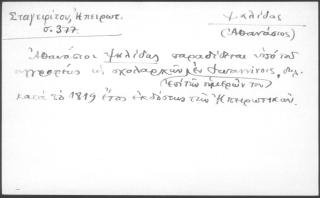 Σταγειρίτου, Ηπειρωτ.
σ. 377.
Ψαλίδας
(Ἀθανάσιος)
Ἀθανάσιος Ψαλίδας παραδίδεται ὑπὸ τοῦ
συγγραφέως ὡς σχολαρχῶν ἐν Ἰωαννίνοις, δηλ.
(ἐπὶ τῶν ἡμερῶν του)
κατὰ τὸ 1819 ἔτος ἐκδόσεως τῶν Ἠπειρωτικῶν.